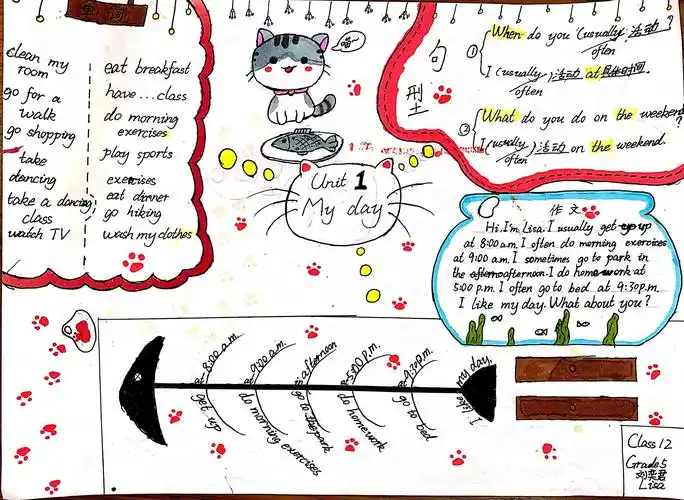 单词
clean my
room
go for a
walk
go shopping
take
dancing
take a dancing
class
watch TV
eat breakfast
have...class
do morning
exercises
play sports
exercises
eat dinner
go hiking
wash my clothes
喵~
Unit 1
My day
句
型
① When do you (usually 活动 ?
often
I (usually ) 活动 at 具体时间.
often
② What do you do on the weekend
?
I (usually ) 活动 on the weekend.
often
作文
Hi. I'm Lisa. I usually get up
at 8:00 a.m. I often do morning exercises
at 9:00 a.m. I sometimes go to park in
the afternoon. I do homework at
5:00 p.m. I often go to bed at 9:30p.m.
I like my day. What about you?
at 8:00 a.m.
get up
at 9:00 a.m.
do morning exercises
afternoon
go to the park
at 5:00 p.m.
do homework
at 9:30p.m.
go to bed
I like my day.
Class 12
Grade 5
刘奕君
Lisa